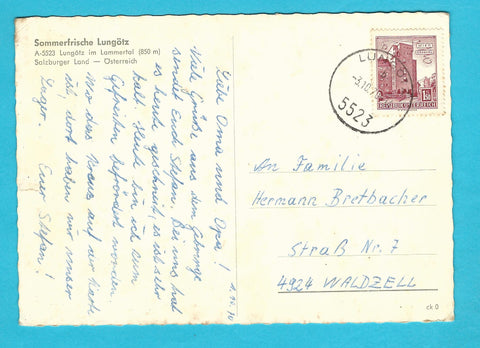 Sommerfrische Lungötz
A-5523 Lungötz im Lammertal (850 m)
Salzburger Land — Österreich
Liebe Oma und Opa!
Viele Grüße aus dem Gebirge
sendet Euch Stefan. Bei uns hat
es heute geschneit, es ist sehr
kalt. Heute bin ich zum
Gefreiten befördert worden.
Wo das Kreuz auf der Karte
ist, dort haben wir unser
Lager. Euer Stefan!
LUNGÖTZ
5523
REPUBLIK ÖSTERREICH
An Familie
Hermann Bretbacher
Straß Nr. 7
4924 WALDZELL
ck 0